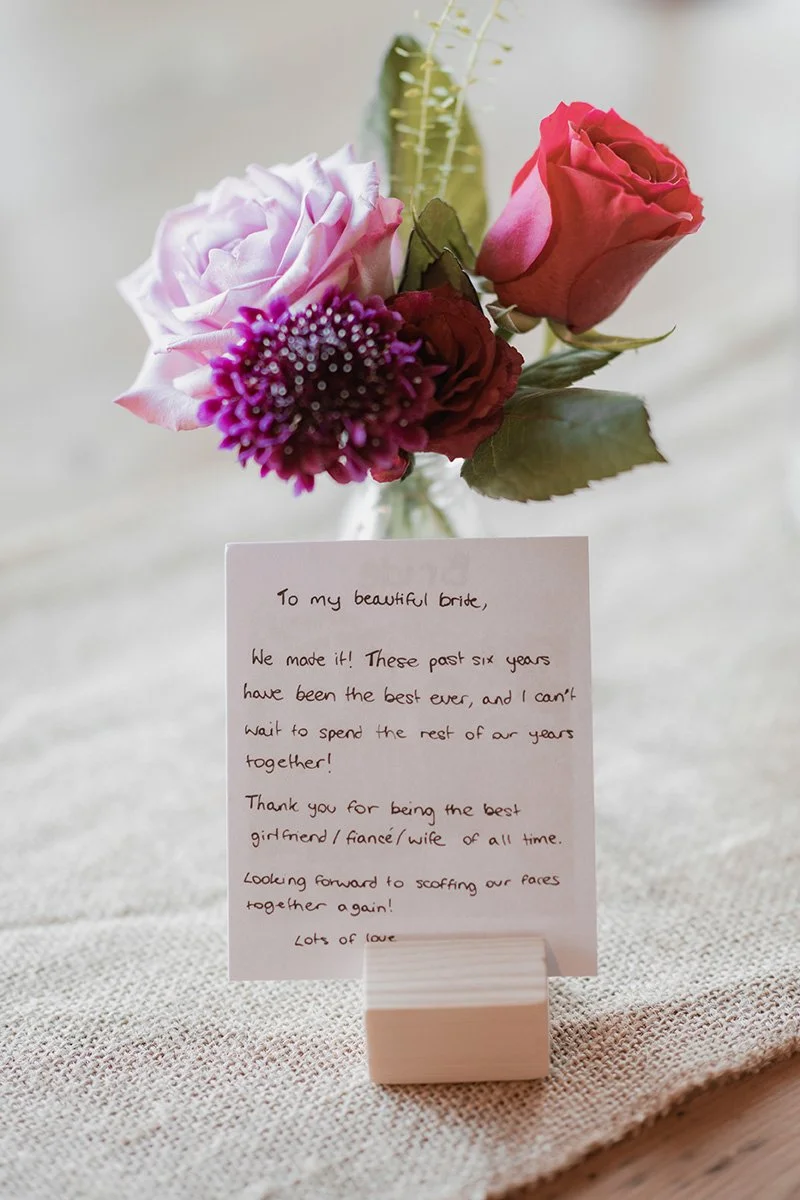 To my beautiful bride,
We made it! These past six years
have been the best ever, and I can't
wait to spend the rest of our years
together!
Thank you for being the best
girlfriend/fiancé/wife of all time.
Looking forward to scoffing our faces
together again!
Lots of love